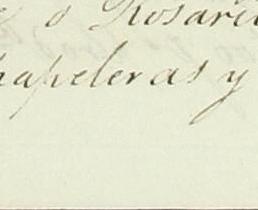 o Rosari
hapeleras y